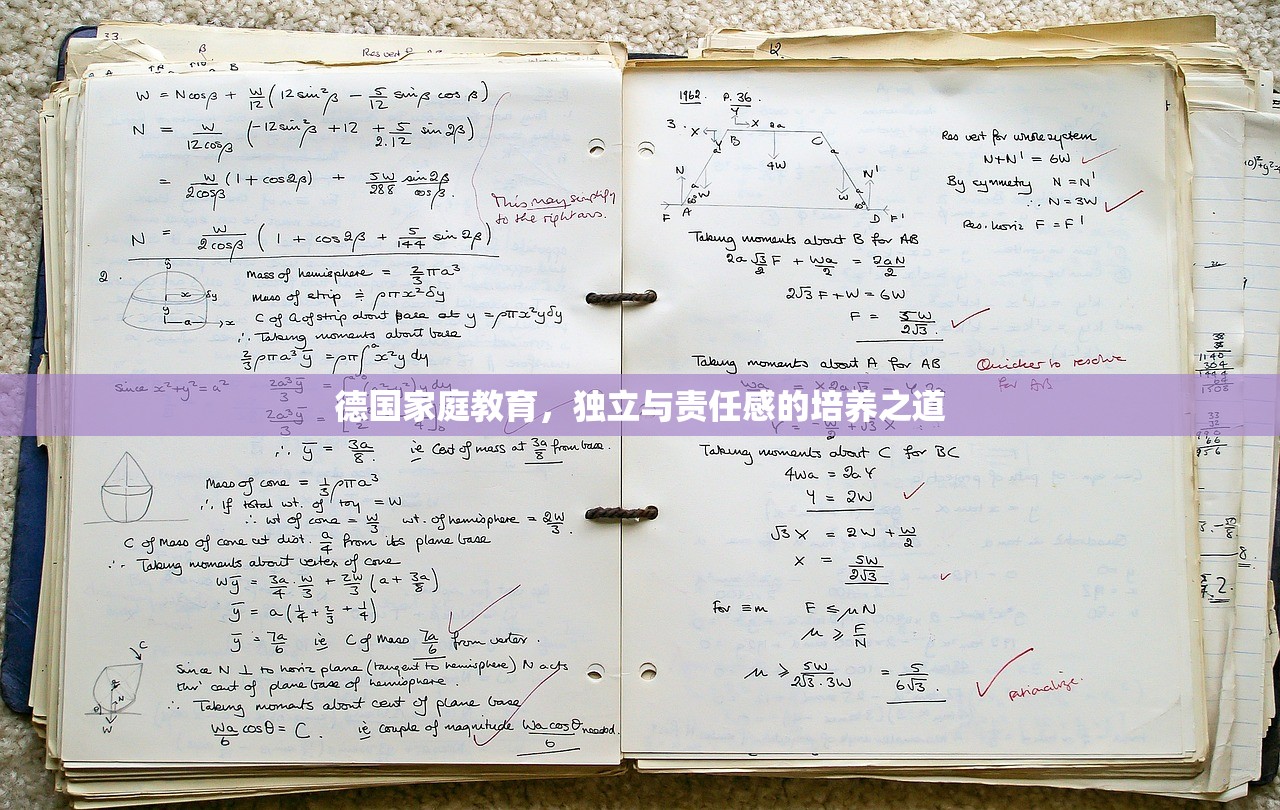 33.
β
Res vert
W = Ncosβ + W/12 (12 sin²β − 5/12 sinβ cosβ)
N = W/12cosβ (-12 sin²β + 12 + 5/2.12 sin 2β)
= W/2cosβ (1 + cos2β) + 5W/288 sin2β/cosβ.
This may simplify
to the right ans.
N = W/2cosβ (1 + cos2β + 5/144 sin 2β)
2.
y
x δy
y
a x
Mass of hemisphere = 2/3 πa³
Mass of strip ≑ ρπx²δy
C of G of strip about base at y = ρπx²yδy
∴ Taking moments about base
2/3 ρπa³ȳ = ρπ∫x²y dy
since x²+y² = a²
2a³ȳ/3
德国家庭教育，独立与责任感的培养之道
∴ ȳ = 3a/8. ie Cent of mass at 3a/8 from base.
Mass of cone = 1/3 ρπa³
∴ If total wt. of toy = W
∴ wt of cone = W/3 wt. of hemisphere = 2W/3.
C of Mass of cone at dist. a/4 from its plane base
∴ Taking moments about vertex of cone
Wȳ = 3a/4 . W/3 + 2W/3 (a + 3a/8)
ȳ = a(1/4 + 2/3 + 1/4)
ȳ = 7a/6 ie C of Mass 7a/6 from vertex.
C
N
θ
W
Since N ⊥ to horiz plane (tangent to hemisphere) N acts
thro' cent of plane base of hemisphere.
∴ Taking moments about cent of plane base
Wa/6 cosθ = C. ie couple of magnitude Wa cosθ/6 needed.
1962. P. 36.
3.
Y
X B 2a C
4W
N W W N'
F A 60° 60° D F'
Res vert for whole system
N+N' = 6W
By symmetry N = N'
∴ N = 3W
Res. horiz F = F'
Taking moments about B for AB
2a √3/2 F + Wa/2 = 2aN/2
2√3 F + W = 6W
F = 5W/2√3.
Taking moments about A for AB
Quicker to resolve
for AB
Taking moments about C for BC
4Wa = 2aY
Y = 2W
√3 X = 2W + W/2
X = 5W/2√3
for ≡m F ≤ μN
μ ≥ F/N
μ ≥ 5W/2√3.3W = 5/6√3.
rationalize.